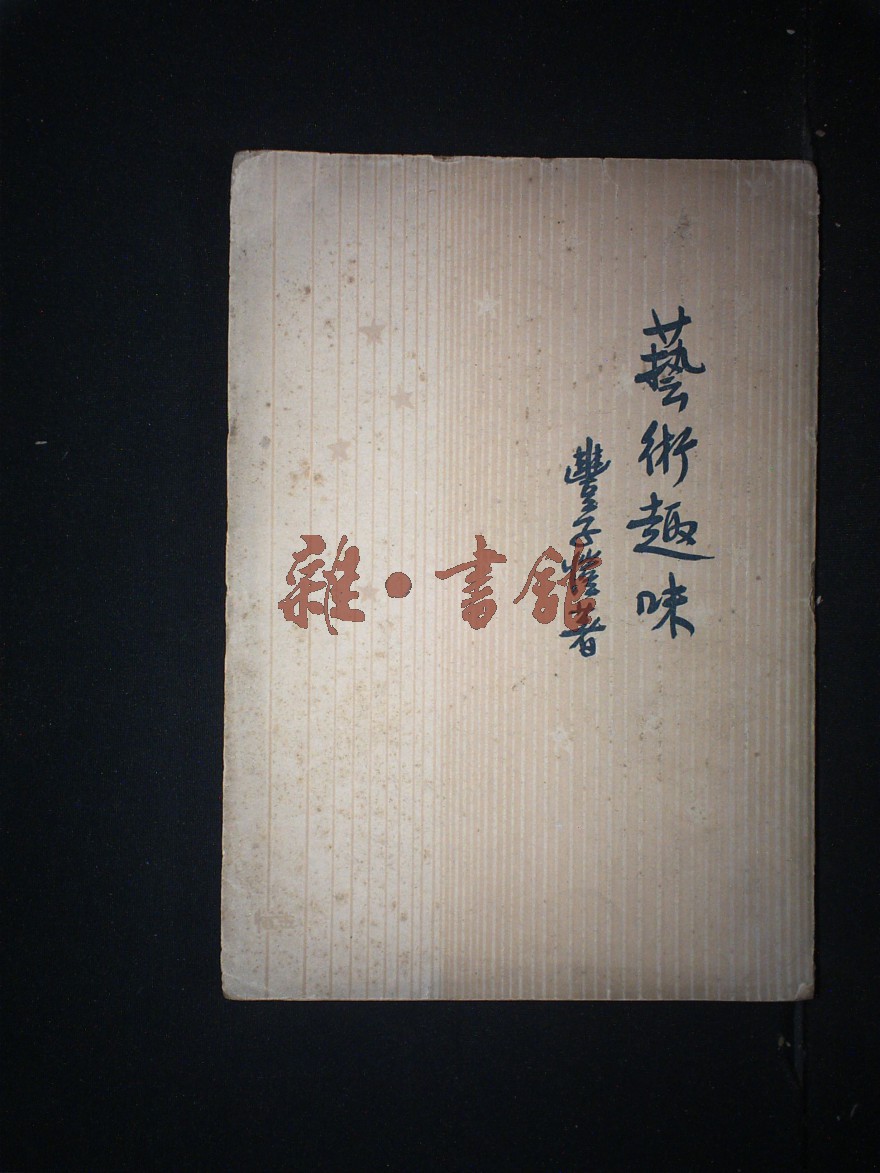 藝術趣味
豐子愷著
雜·書館